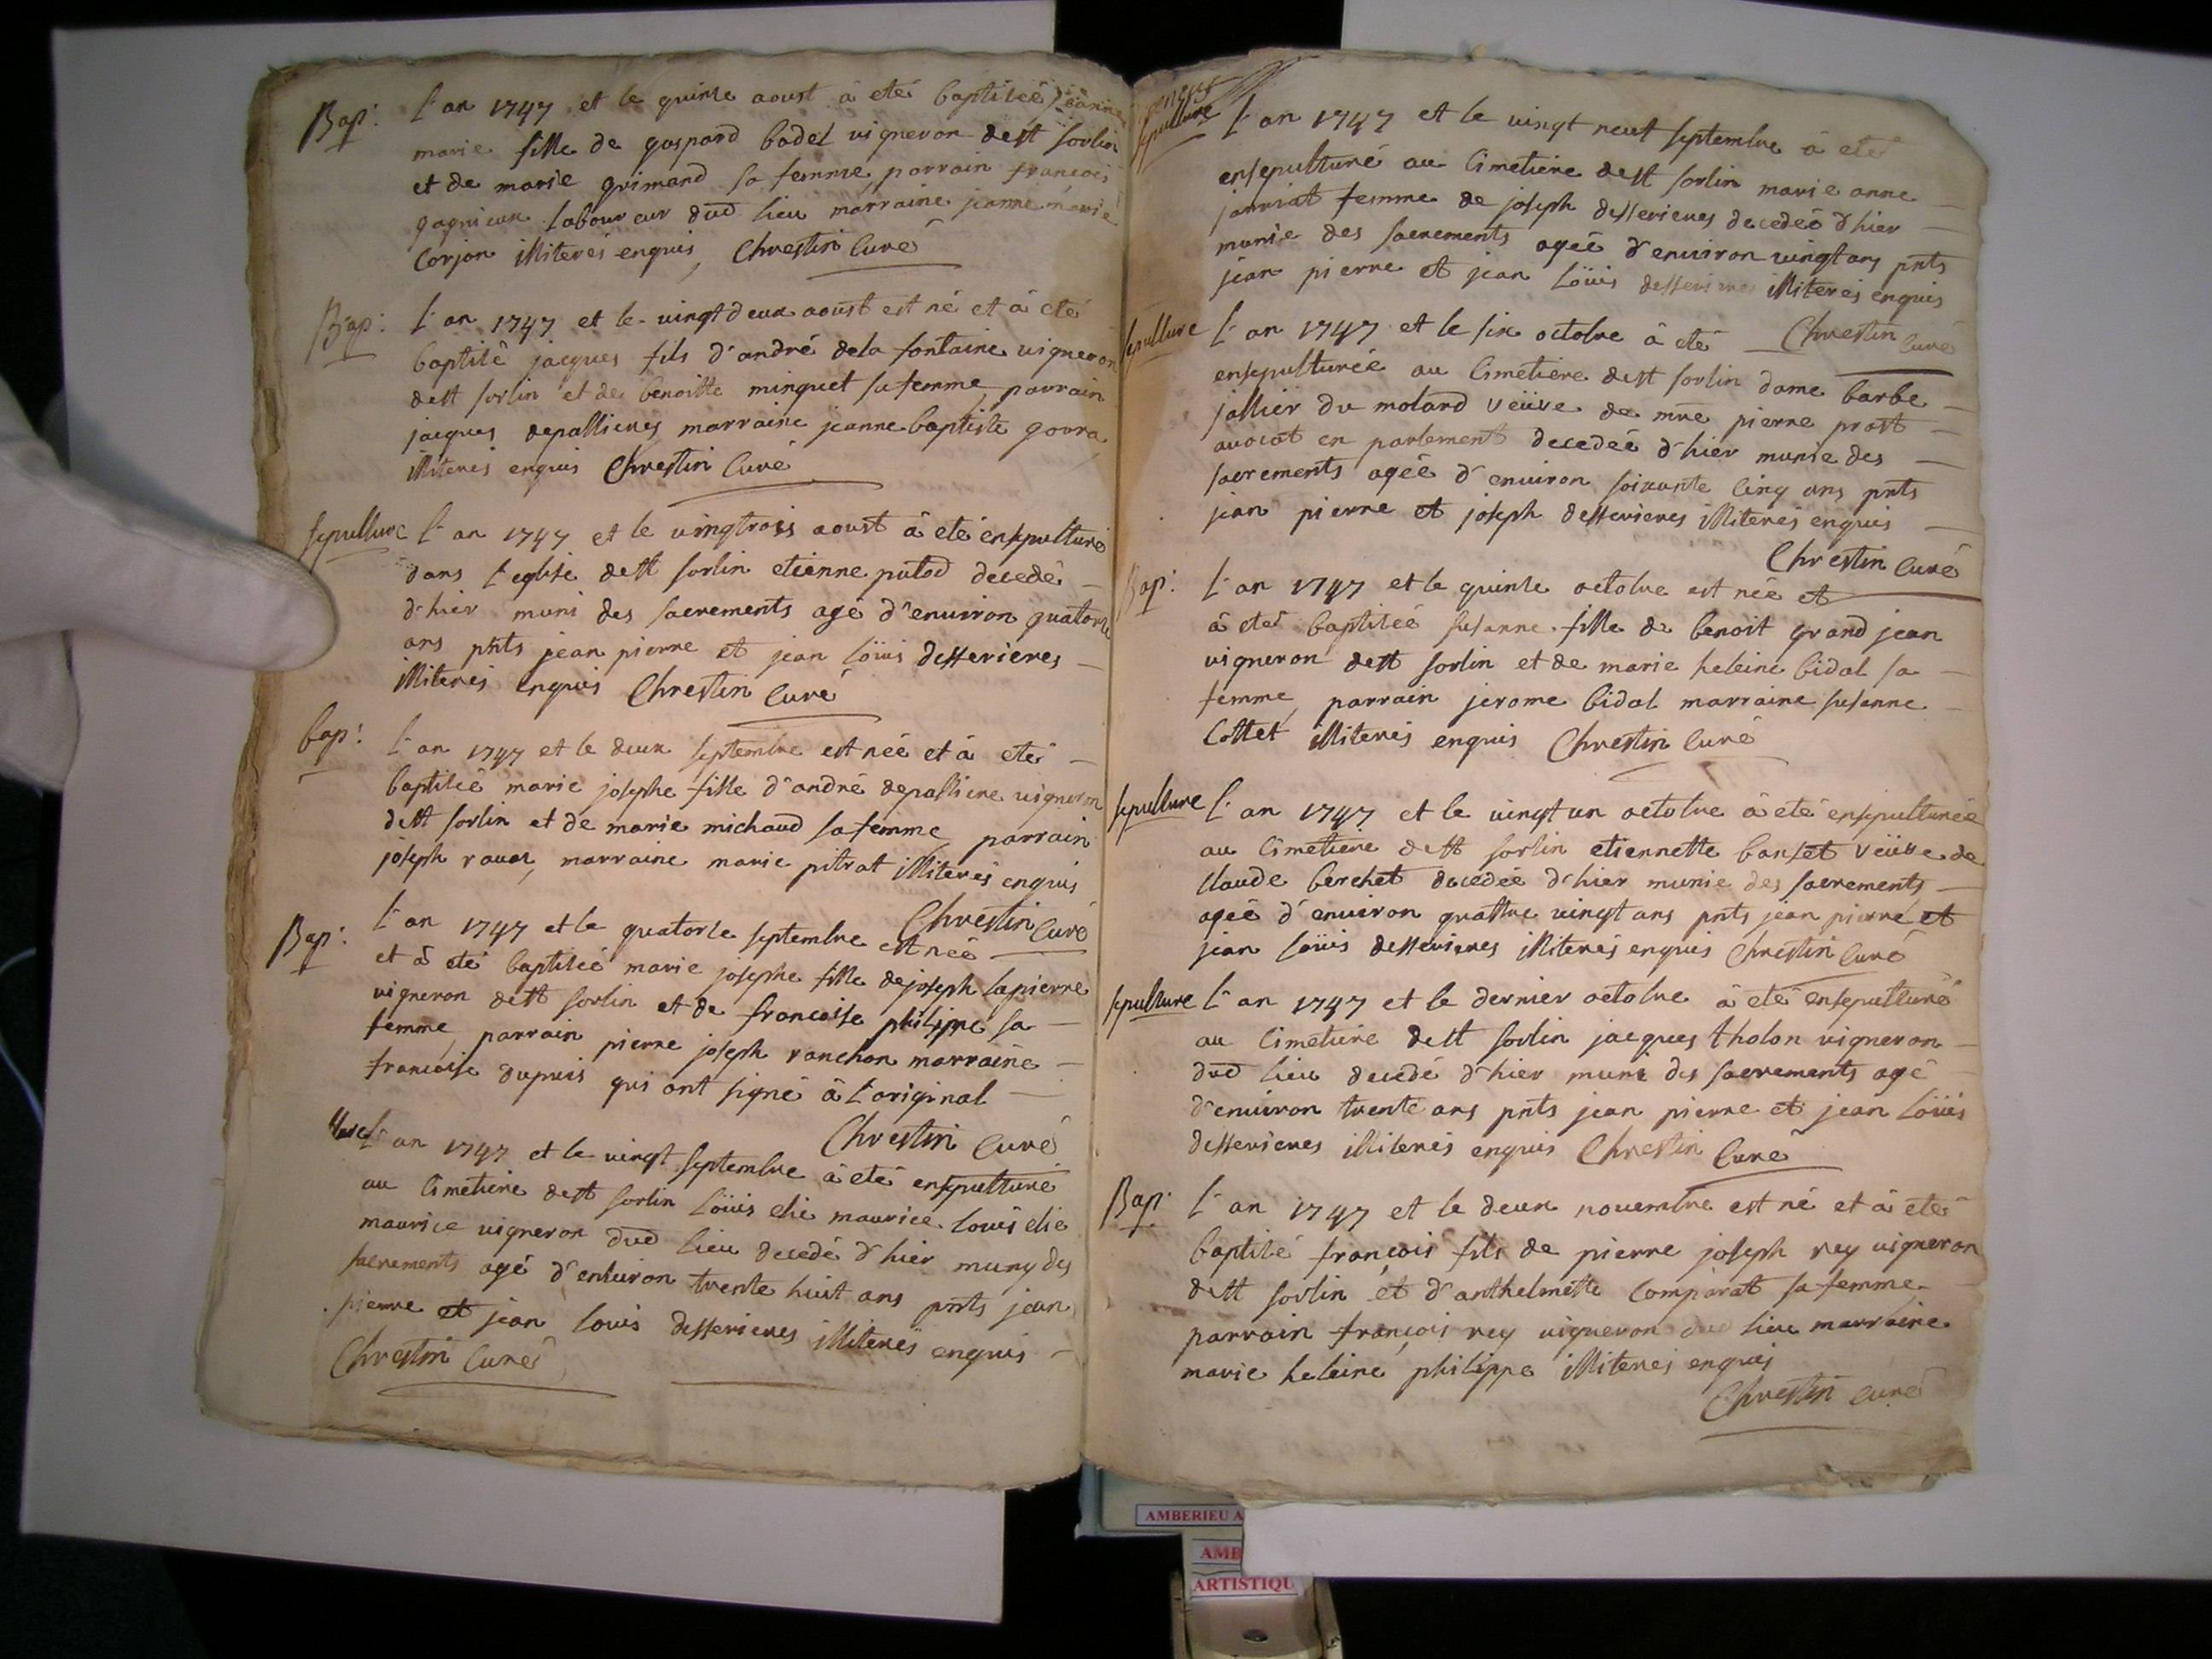 Bap: L'an 1747 et le quinze aoust à eté baptisée jeanne
marie fille de gaspard badel vigneron de st sorlin
et de marie grimand sa femme, parrain françois
gagnieux laboureur dud lieu marraine jeanne marie
Corjon illiterés enquis, Chrestin Curé
Bap: L'an 1747 et le vingt deux aoust est né et à eté
baptisé jacques fils d'andré dela fontaine vigneron
de st sorlin et de benoitte minguet sa femme, parrain
jacques depallieres marraine jeanne baptiste gourra
illiterés enquis Chrestin Curé
sepulture L'an 1747 et le vingtrois aoust à eté ensepulturé
dans l'eglise de st sorlin etienne putod decedé
d'hier muni des sacrements agé d'environ quatorze
ans pnts jean pierre et jean loüis desserieres
illiterés enquis Chrestin Curé
bap: L'an 1747 et le deux septembre est née et à eté
baptisée marie josephe fille d'andré depalliere vigneron
de st sorlin et de marie michaud sa femme, parrain
joseph ravat, marraine marie pitrat illiterés enquis
Chrestin Curé
Bap: L'an 1747 et le quatorze septembre est née
et à eté baptisée marie josephe fille de joseph lapierre
vigneron de st sorlin et de francoise philippe sa
femme, parrain pierre joseph ranchon marraine
francoise dupuis qui ont signé à l'original
Chrestin Curé
L'an 1747 et le vingt septembre à eté ensepulturé
au Cimetiere de st sorlin loüis elie maurice louis elie
maurice vigneron dud lieu decedé d'hier muny des
sacrements agé d'environ trente huit ans pnts jean
pierre et jean louis desserieres illiterés enquis
Chrestin Curé
sepulture L'an 1747 et le vingt neuf septembre à eté
ensepulturé au Cimetiere de st sorlin marie anne
janriat femme de joseph desserieres decedeé d'hier
munie des sacrements ageé d'environ vingt ans pnts
jean pierre et jean Loüis desserieres illiterés enquis
Chrestin Curé
sepulture L'an 1747 et le six octobre à eté
ensepulturée au Cimetiere de st sorlin dame barbe
jallier du molard veüve de mre pierre prost
avocat en parlement decedeé d'hier munie des
sacrements ageé d'environ soixante cinq ans pnts
jean pierre et joseph desserieres illiterés enquis
Chrestin Curé
Bap: L'an 1747 et le quinze octobre est née et
à eté baptiseé susanne fille de benoit grand jean
vigneron de st sorlin et de marie heleine bidal sa
femme, parrain jerome bidal marraine susanne
Cottet illiterés enquis Chrestin Curé
sepulture L'an 1747 et le vingt un octobre à eté ensepulturée
au Cimetiere de st sorlin etiennette banset veüve de
claude berchet decedeé d'hier munie des sacrements
ageé d'environ quattre vingt ans pnts jean pierre et
jean loüis desserieres illiterés enquis Chrestin Curé
sepulture L'an 1747 et le dernier octobre à eté ensepulturé
au Cimetiere de st sorlin jacques tholon vigneron
dud lieu decedé d'hier muni des sacrements agé
d'environ trente ans pnts jean pierre et jean Loüis
desserieres illiterés enquis Chrestin Curé
Bap: L'an 1747 et le deux novembre est né et à eté
baptisé françois fils de pierre joseph rey vigneron
de st sorlin et d'anthelmette Comparat sa femme
parrain françois rey vigneron dud lieu marraine
marie heleine philippe illiterés enquis
Chrestin curé
AMBERIEU A
AMB
ARTISTIQU